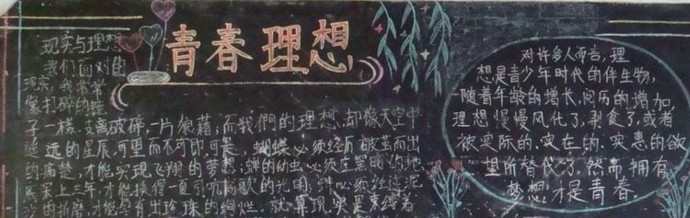 青春理想
现实与理想
我们面对自
子一样支离破碎,一片狼藉,而我們的理想,却像天空中
遥远的星辰,可望而不可即,可是,蝴蝶必须经历破茧而出
的痛楚,才能实现飞翔的梦想;蝉的幼虫必须在黑暗的地
底呆上三年,才能换得一夏引吭高歌的光阴;蚌必须经过泥
沙的折磨,才能孕育出珍珠的绚烂。就算现实是束缚着
对许多人而言,理
想是青少年时代的伴生物,
随着年龄的增长,阅历的增加,
理想慢慢风化了,剥食了,或者
被实际的,实在的,实惠的欲
望所替代了。然而,拥有
梦想才是青春